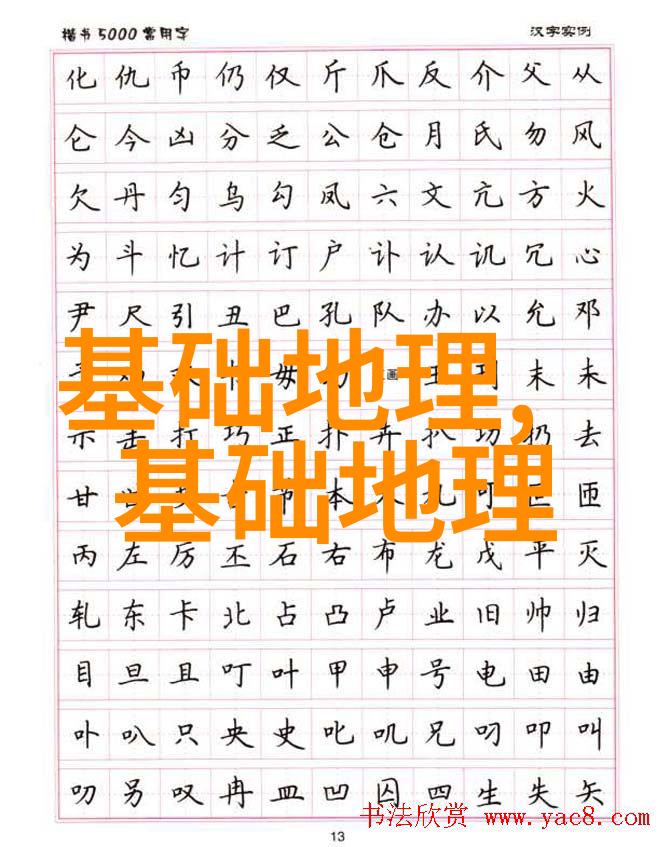 楷书5000常用字 汉字实例
化仇币仍仅斤爪反介父从
仑今凶分乏公仓月氏勿风
欠丹匀乌勾凤六文亢方火
为斗忆计订户讣认讥冗心
尹尺引丑巴孔队办以允邓
毋画刊末未
基础地理,
示击打巧正扑卉扒功扔去
甘节本可匝
基础地理
丙左厉丕石右布龙戊平灭
轧东卡北占凸卢业旧帅归
目旦且叮叶甲申号电田由
卟叭只央史叱叽兄叩叫
另叹冉皿凹囚四生失矢
书法欣赏 www.yac8.com
13